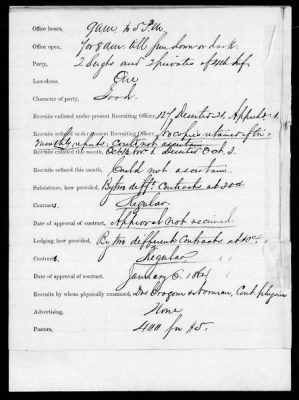 Office hours, 9 a.m. to 5 P.M.
Office open, 7 or 8 a.m. till sun down or dark.
Party, 2 Sergts and 2 privates of 4th Inf.
Laundress, One
Character of party, Good.
Recruits enlisted under present Recruiting Officer, 127, Deserted 21,
Recruits refused under present Recruiting Officer, No copies retained of tri-
monthly reports. Could not ascertain
Recruits enlisted this month, October Deserted Oct. 3.
Recruits refused this month, Could not ascertain.
Subsistence, how provided, By two diff't. Contracts at
Contract, Regular.
Date of approval of contract, Approval not received
Lodging, how provided, By two different Contracts at
Contract, Regular "
Date of approval of contract, January 6. 1864 "
Recruits by whom physically examined, Drs & Norman, Cont. physicians
Advertising, None
Posters, 400 for H.S.